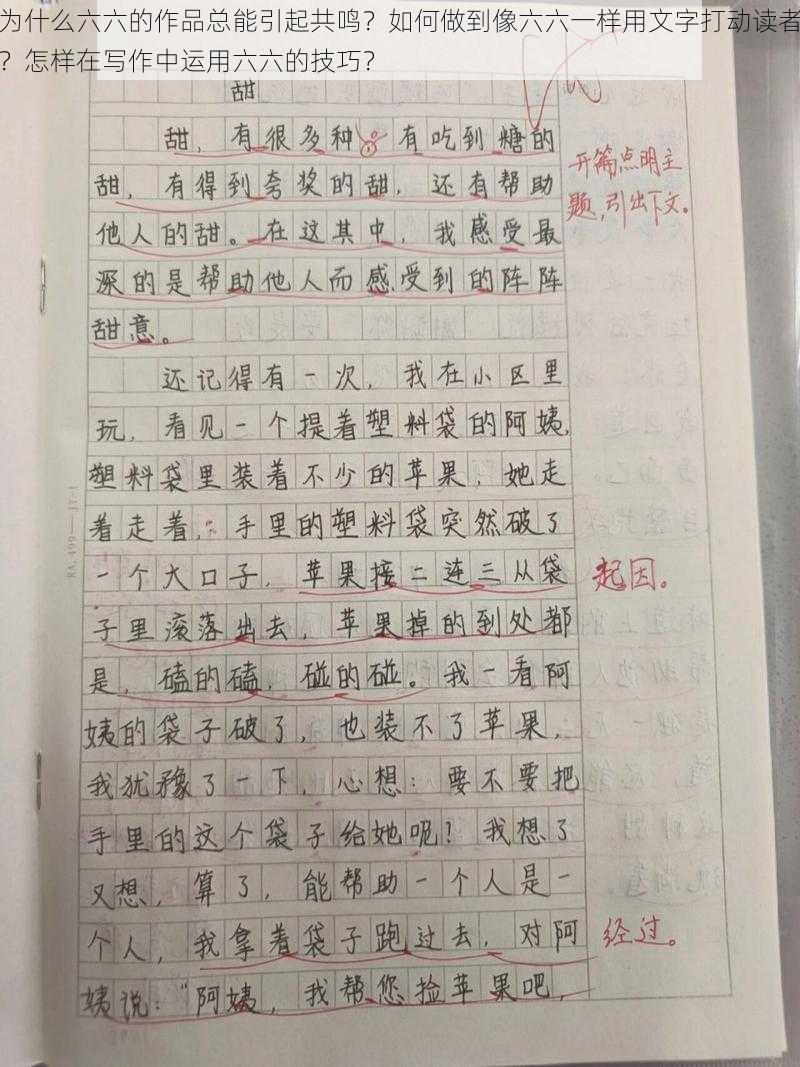 为什么六六的作品总能引起共鸣？如何做到像六六一样用文字打动读者
？怎样在写作中运用六六的技巧？
甜
甜，有很多种，有吃到糖的
甜，有得到夸奖的甜，还有帮助
他人的甜。在这其中，我感受最
深的是帮助他人而感受到的阵阵
甜意。
开篇点明主
题，引出下文。
还记得有一次，我在小区里
玩，看见一个提着塑料袋的阿姨，
塑料袋里装着不少的苹果，她走
着走着，手里的塑料袋突然破了
一个大口子，苹果接二连三从袋
子里滚落出去，苹果掉的到处都
是，磕的磕，碰的碰。我一看阿
姨的袋子破了，也装不了苹果，
我犹豫了一下，心想：要不要把
手里的这个袋子给她呢？我想了
又想，算了，能帮助一个人是一
个人，我拿着袋子跑过去，对阿
姨说：“阿姨，我帮您捡苹果吧，
起因。
经过。